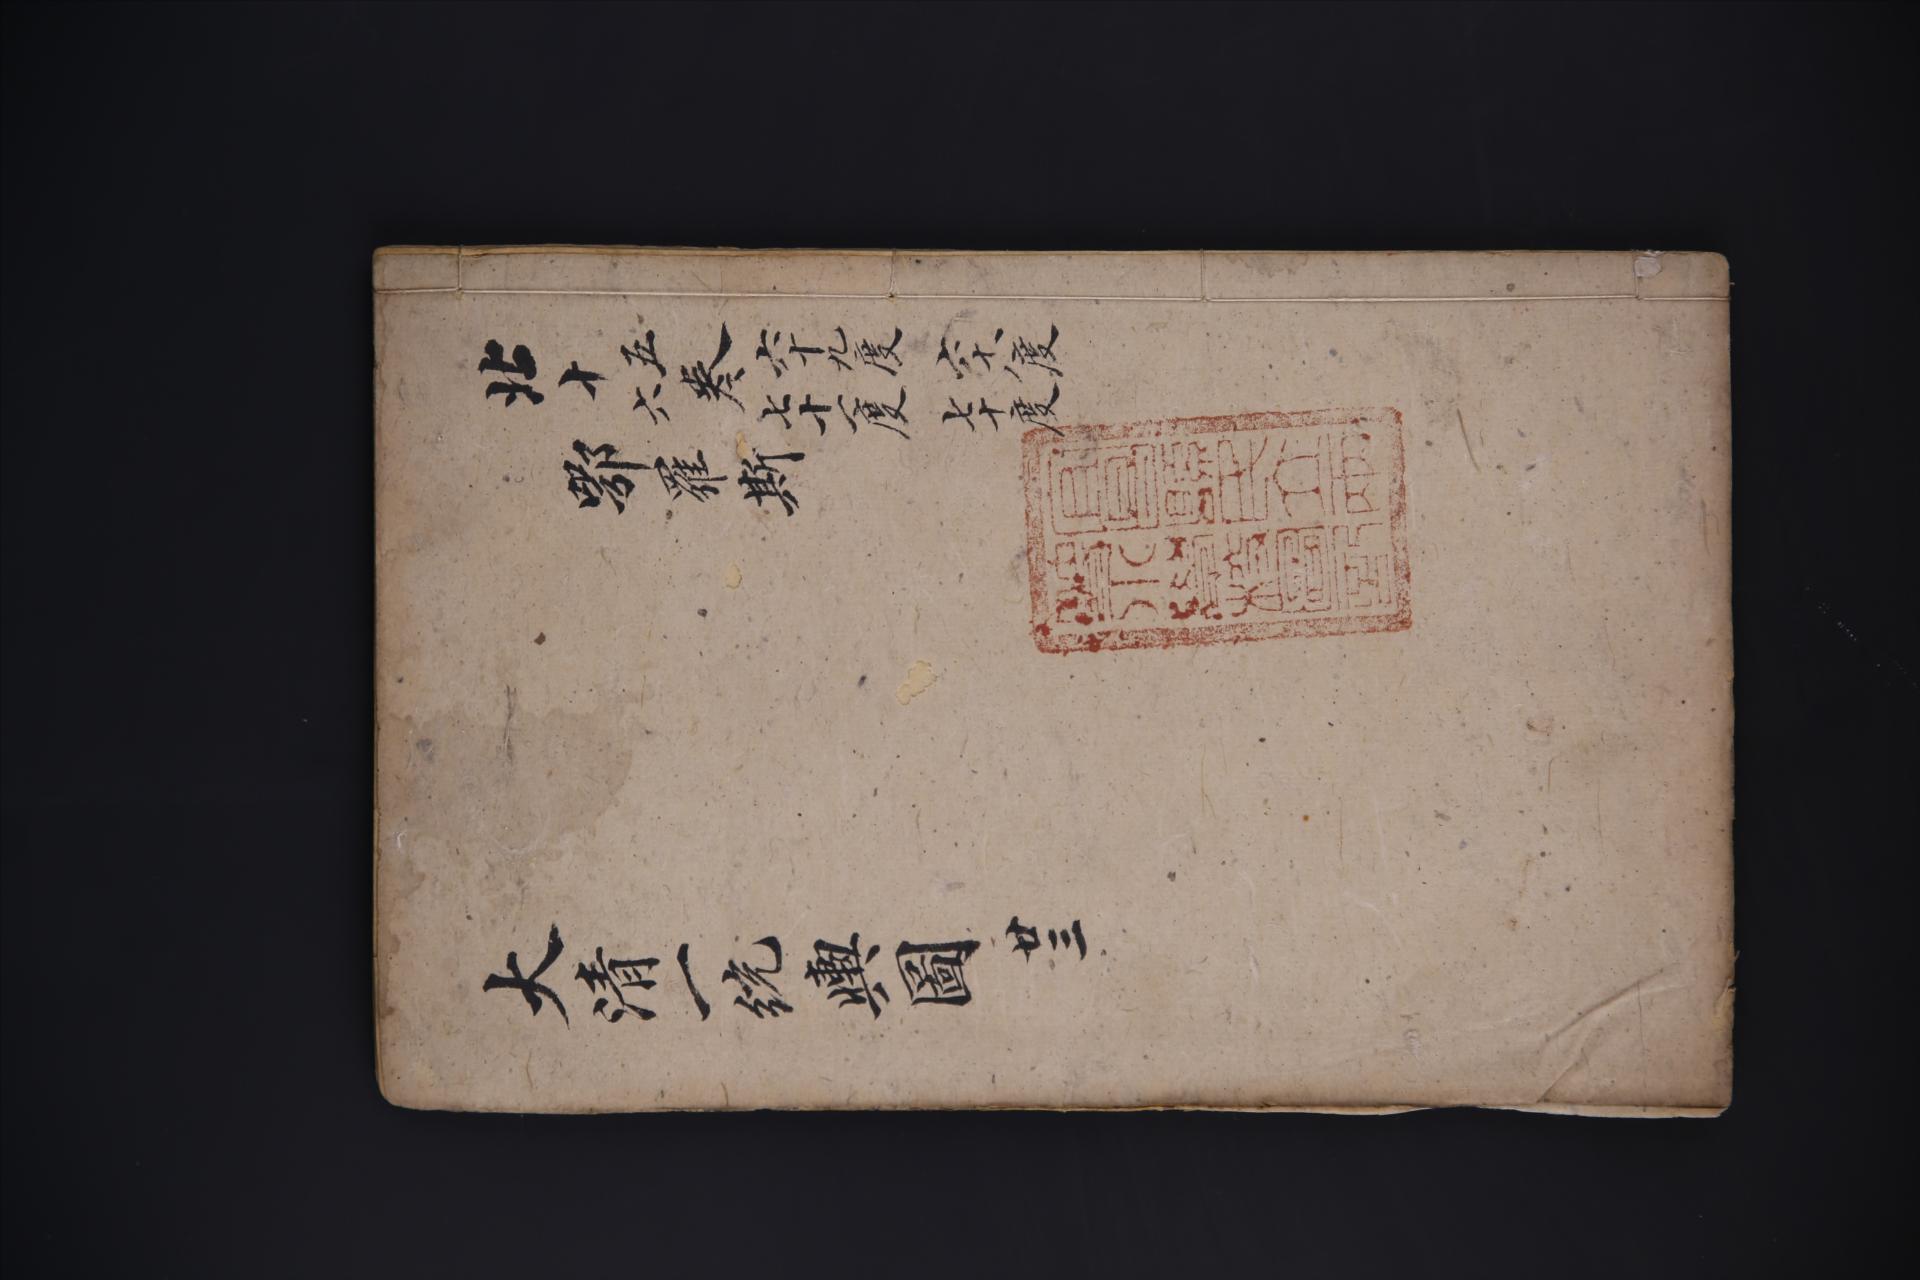 北十五六卷 六十九度 七十一度 六十八度 七十度
鄂羅斯
大清一統輿圖 廿三